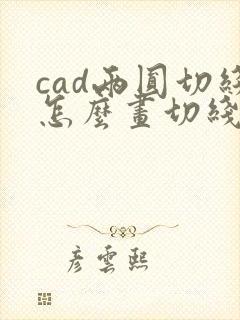 cad兩圓切綫
怎麼畫切綫
彦雲熙